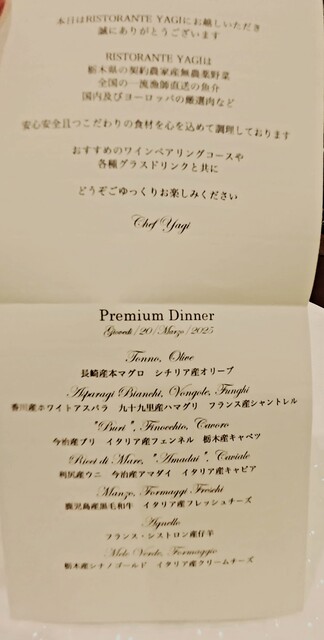 本日はRISTORANTE YAGIにお越しいただき
誠にありがとうございます
RISTORANTE YAGIは
栃木県の契約農家産無農薬野菜
全国の一流漁師直送の魚介
国内及びヨーロッパの厳選肉など
安心安全且つこだわりの食材を心を込めて調理しております
おすすめのワインペアリングコースや
各種グラスドリンクと共に
どうぞごゆっくりお楽しみください
Chef Yagi
Premium Dinner
Giovedi/20/Marzo/2025
Tonno, Olive
長崎産本マグロ シチリア産オリーブ
Asparagi Bianchi, Vongole, Funghi
香川産ホワイトアスパラ 九十九里産ハマグリ フランス産シャントレル
"Buri", Finocchio, Cavoro
今治産ブリ イタリア産フェンネル 栃木産キャベツ
Ricci di Mare, "Amadai", Caviale
利尻産ウニ 今治産アマダイ イタリア産キャビア
Manzo, Formaggi Freschi
鹿児島産黒毛和牛 イタリア産フレッシュチーズ
Agnello
フランス・シストロン産仔羊
Mele Verde, Formaggio
栃木産シナノゴールド イタリア産クリームチーズ